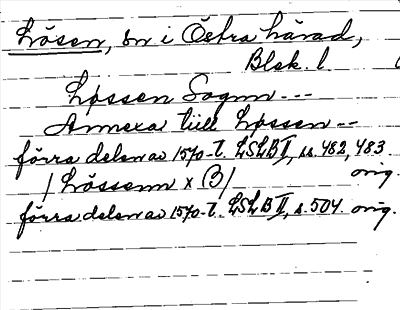 Lösen, sn i Östra härad,
Blek. l
Løssen Sognn ---
Annexa till Løssen --
förra delen av 1570-t. LSLB II, ss. 482, 483
orig.
/ Lössenn x B /
förra delen av 1570-t. LSLB II, s. 504. orig.